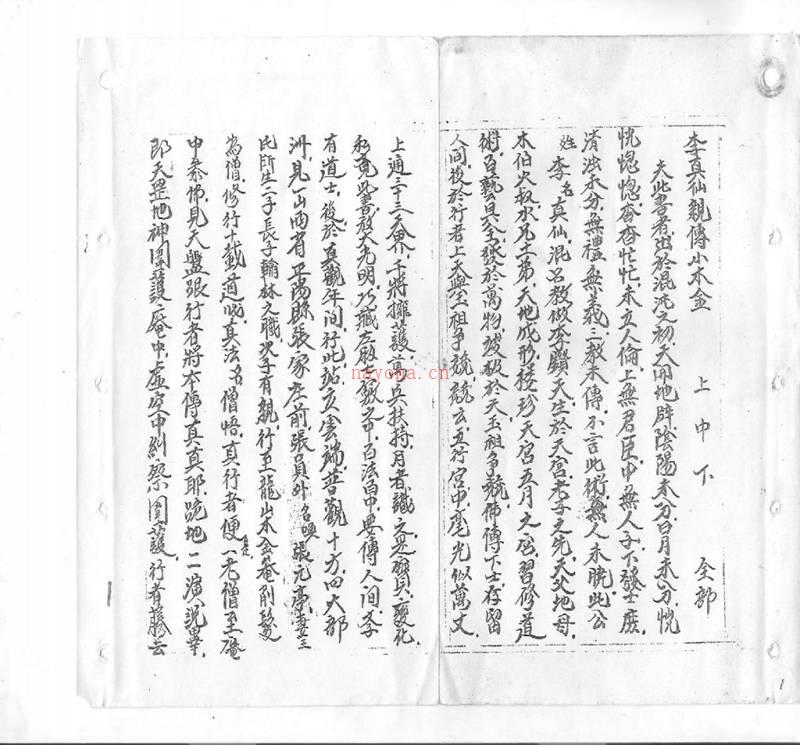 李真仙親傳小木金 上中下 全部
夫此書者出於混沌之初天開地辟陰陽未分日月未分恍
恍惚惚杳杳忙忙未立人倫上無君臣中無人子下發士庶
清濁未分無禮無義三教未傳不言此術無人未曉此公
姓李名真仙混名教做李顯天生於天宮老子之先天父地母
木伯火叔水兄土弟天地成形 天宮五月之 習修道
術百藝具全發於萬物 於天玉祖争競佛傳下士存留
人間後於行者上天與玉祖争競競云五行宮中毫光似萬丈
上通三十三天界千將擁護 兵扶持月者 之 變化
此書放大光明巧藏在殿 之中百法百中要傳人間李
有道士後於真觀年間行此 立雲端普觀十方四大部
洲見一山西省 陽縣張家庄前張員外名喚張元亭妻王
氏所生二子長子翰林之職次子有親行至龍山木金庵削髮
為僧修行十載道成真法名僧悟真行者便 一老僧至庵
中參佛見天盤跟行者將本傳真真耶跪地一一演說畢
即天罡地神囯護庵中上虛空中糾察囯護行者騰云
nayona.cn
1